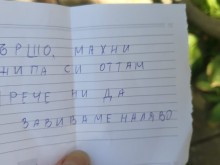 ЪРШО, МАХНИ
ЖИПА СИ ОТТАМ
ПРЕЧЕ НИ ДА
ЗАВИВАМЕ НАЛЯВО